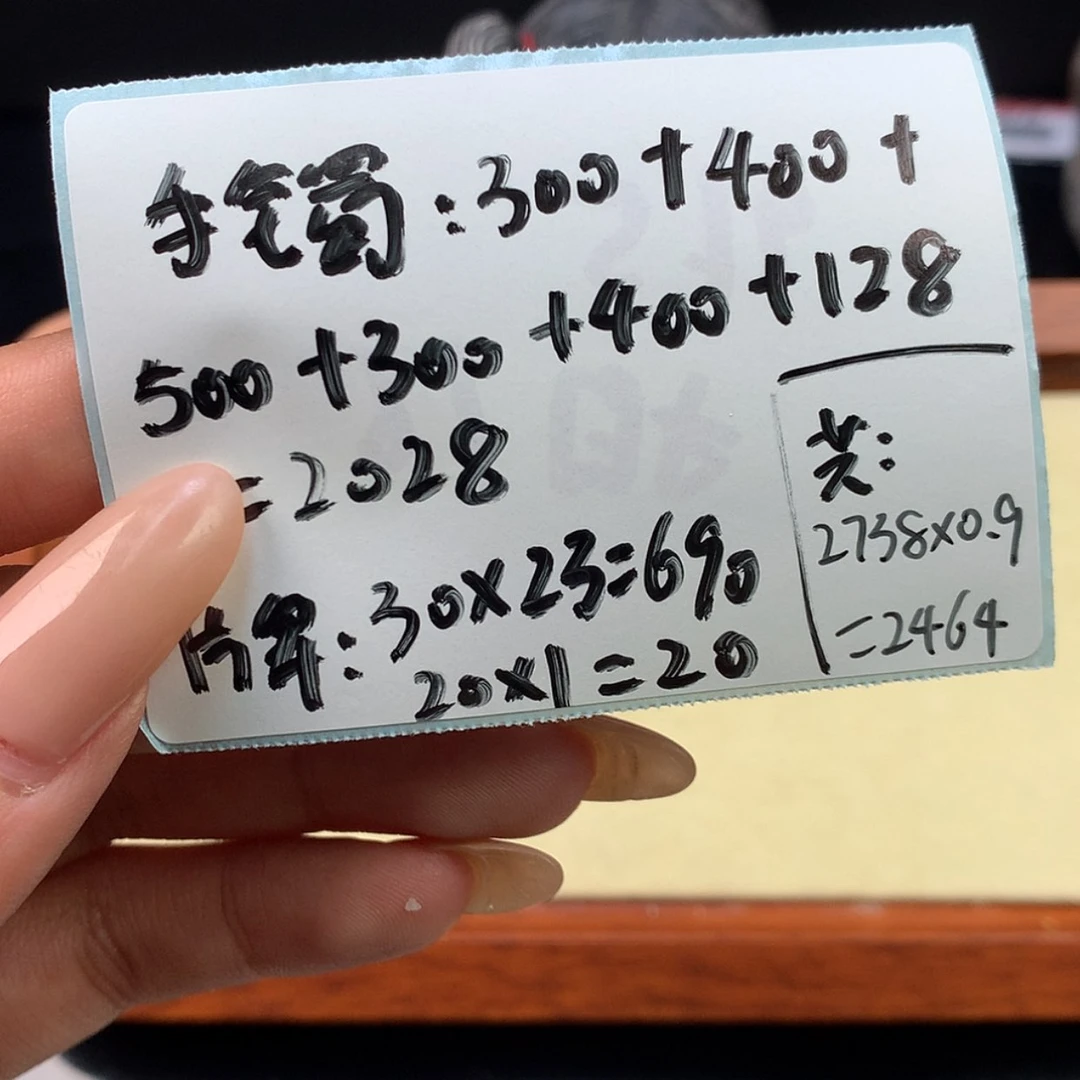 手宅蜀:300+400+
500+300+400+128
=2028
片单:30×23=690
20×1=20
共:
2738×0.9
=2464